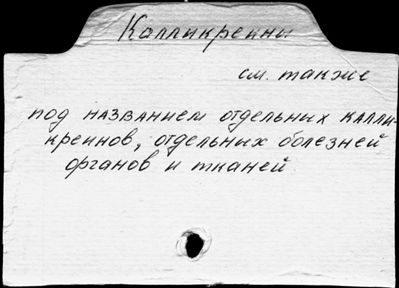 Калликреины
см. также
под названием отдельных калли-
креинов, отдельных болезней
органов и тканей